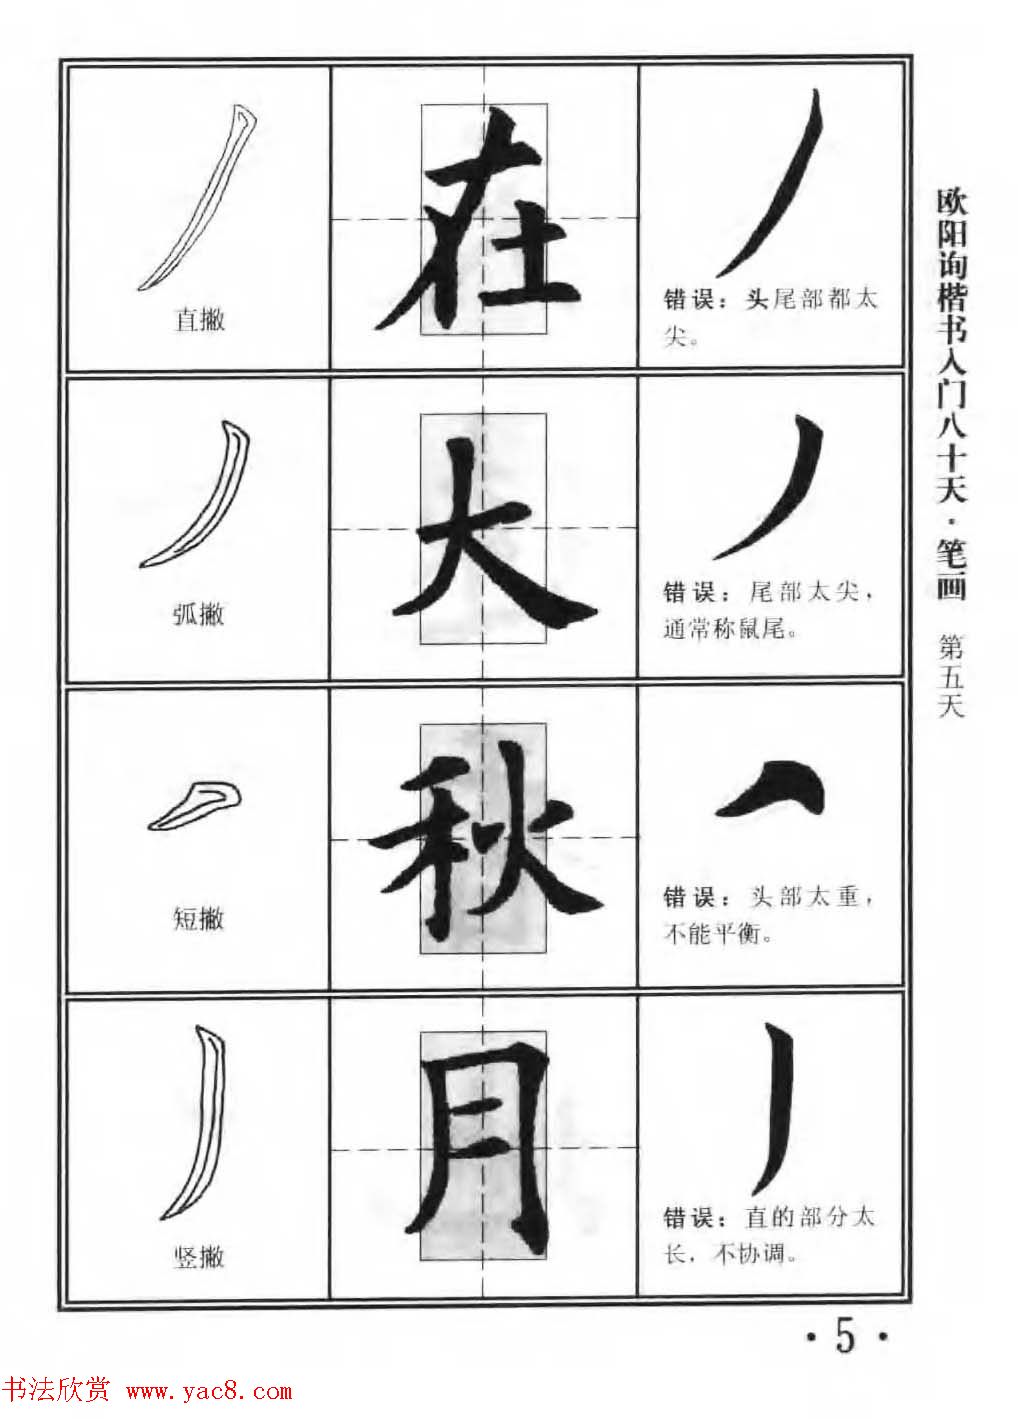 直撇
在
错误：头尾部都太
尖。
弧撇
大
错误：尾部太尖，
通常称鼠尾。
短撇
秋
错误：头部太重，
不能平衡。
竖撇
月
错误：直的部分太
长，不协调。
欧阳询楷书入门八十天·笔画 第五天
·5·
书法欣赏 www.yac8.com